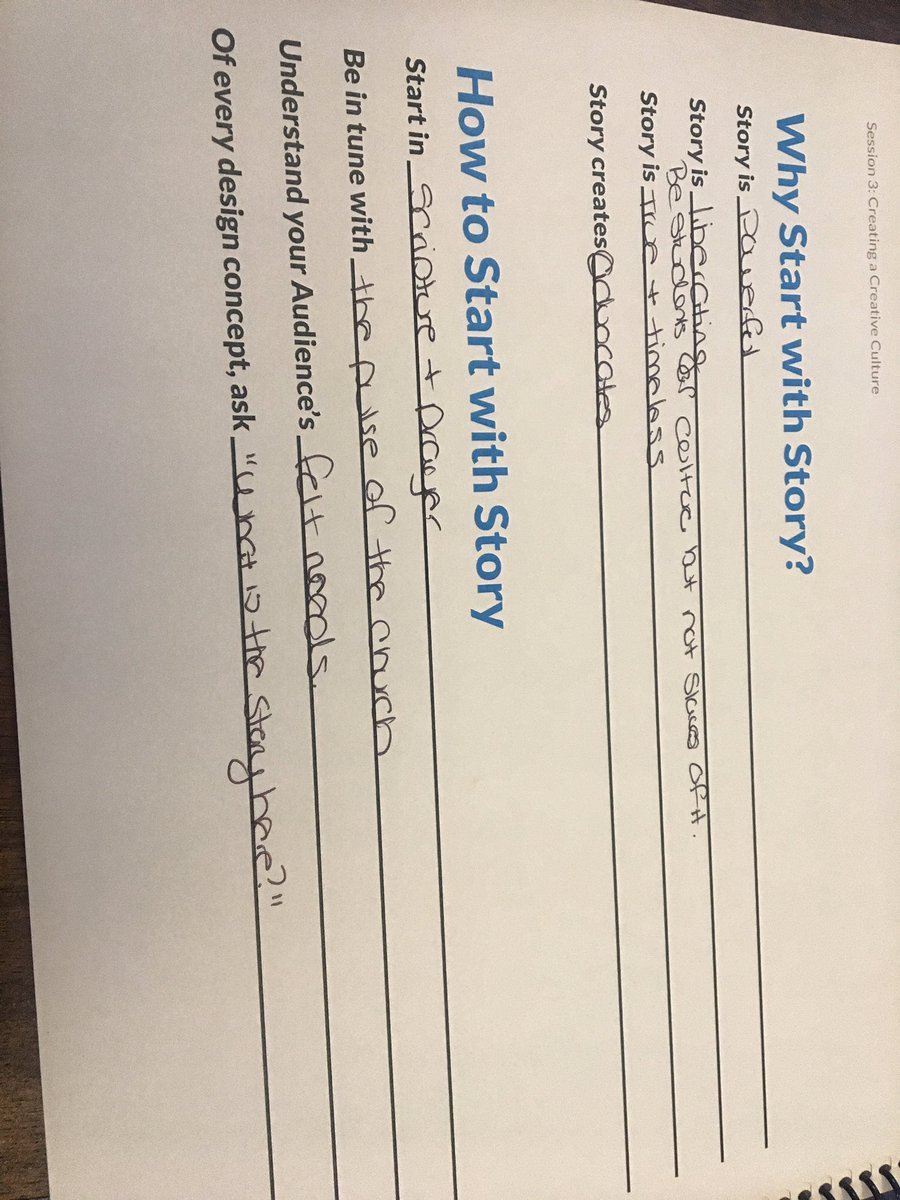 Session 3: Creating a Creative Culture
Why Start with Story?
Story is powerful
Story is liberating
Be students of culture, but not slaves of it.
Story is true + timeless
Story creates advocates
How to Start with Story
Start in scripture + prayer
Be in tune with the pulse of the church
Understand your Audience's felt needs.
Of every design concept, ask "what is the story here?"